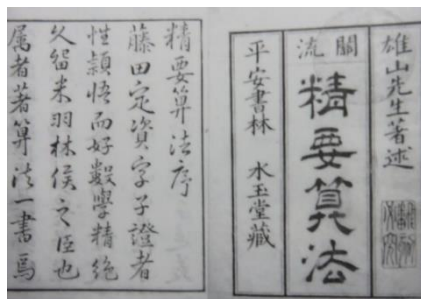 雄山先生著述
關流
精要算法
平安書林 水玉堂藏
精要算法序
藤田定資字子證者
性穎悟而好數學精絶
久留米羽林侯之臣也
属者著算法一書焉